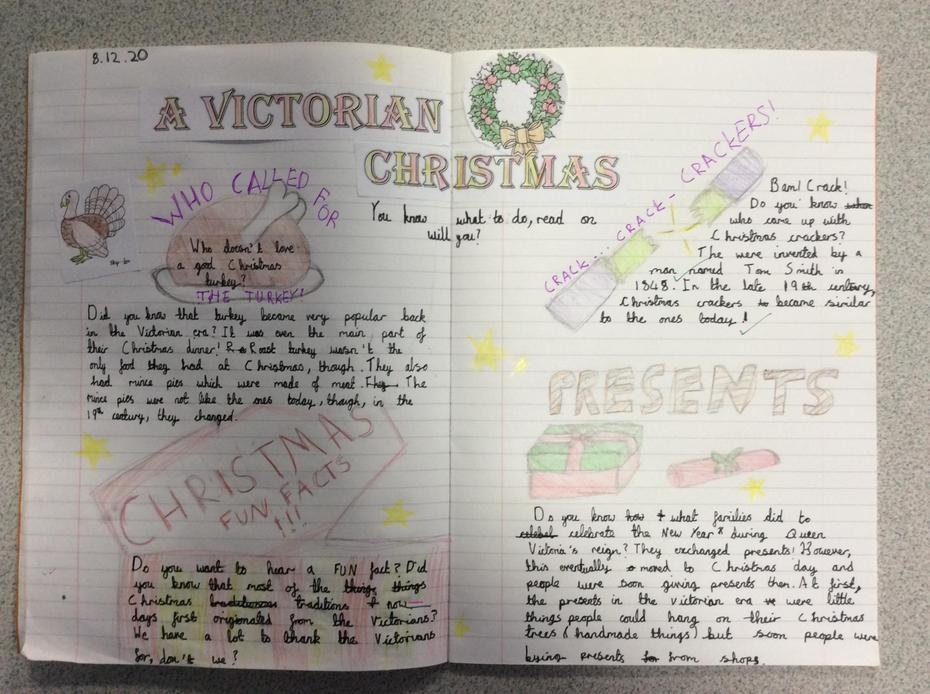 8.12.20
A VICTORIAN
CHRISTMAS
You know what to do, read on
will you?
WHO CALLED FOR
Who doesn't love
a good Christmas
turkey?
THE TURKEY!
Did you know that turkey became very popular back
in the Victorian era? It was even the main part of
their Christmas dinner! Roast turkey wasn't the
only food they had at Christmas, though. They also
had mince pies which were made of meat. The
mince pies were not like the ones today, though, in the
19th century, they changed.
CHRISTMAS
FUN FACTS
!!!
Do you want to hear a FUN fact? Did
you know that most of the things things
Christmas traditions now
days first origionated from the Victorians?
We have a lot to thank the Victorians
for, don't we?
CRACK... CRACK - CRACKERS!
Bam! Crack!
Do you know
who came up with
Christmas crackers?
The were invented by a
man named Tom Smith in
1848. In the late 19th century,
Christmas crackers became similar
to the ones today!
PRESENTS
Do you know how what families did to
celebrate the New Year during Queen
Victoria's reign? They exchanged presents! However,
this eventually moved to Christmas day and
people were soon giving presents then. At first,
the presents in the victorian era were little
things people could hang on their Christmas
trees (handmade things) but soon people were
bying presents from shops.